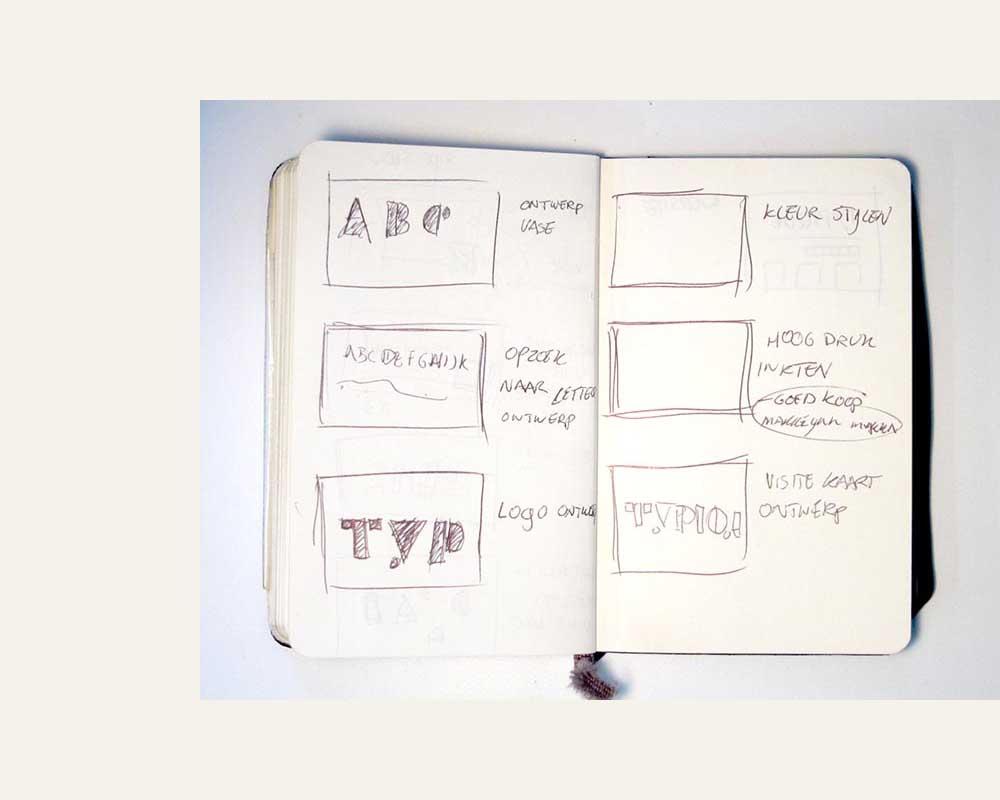 ABC
ONTWERP
VASE
ABCDEFGHIJK
OPZOEK
NAAR LETTER
ONTWERP
TYP
LOGO ONTWE
KLEUR STIJLEN
HOOG DRUK
INKTEN
GOED KOOP
MAKKELIJK MAKEN
VISITE KAART
ONTWERP